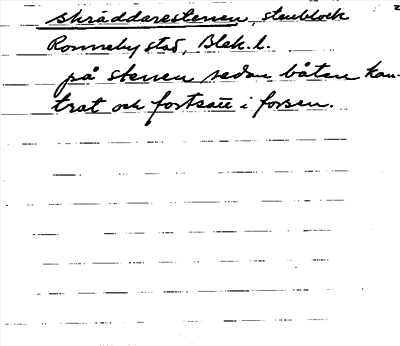 skräddarestenen, stenblock 2
Ronneby stad, Blek. l.
på stenen sedan båten kan-
trat och fortsatt i forsen.